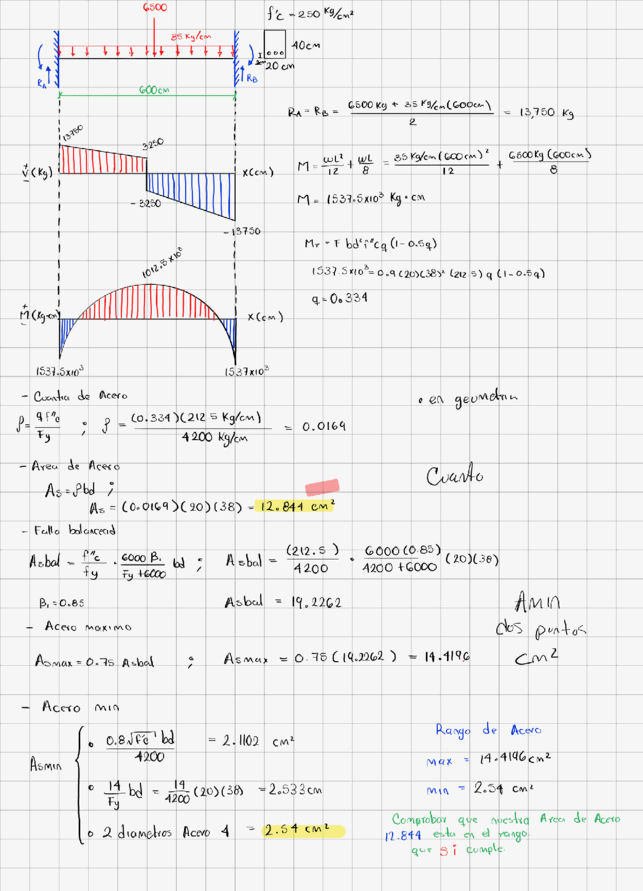 6500
f'c = 250 Kg/cm²
35 Kg/cm
40cm
20 cm
RA
RB
600cm
RA = RB = 6500 Kg + 35 Kg/cm (600cm) / 2 = 13,750 Kg
13750
3250
+
V (Kg)
-
X(cm)
- 3250
- 13750
M = WL²/12 + WL/8 = 35 Kg/cm (600 cm)²/12 + 6500 Kg (600cm)/8
M = 1537.5x10³ Kg·cm
Mr = F bd² f"c q (1-0.5q)
1537.5x10³ = 0.9 (20)(38)² (212.5) q (1-0.5q)
q = 0.334
1012.5x10³
+
M (Kg·cm)
-
X(cm)
1537.5x10³
1537x10³
- Cuantia de Acero
ρ = q f"c / Fy ; ρ = (0.334)(212.5 Kg/cm) / 4200 Kg/cm = 0.0169
• en geometria
- Area de Acero
As = ρbd ;
As = (0.0169)(20)(38) = 12.844 cm²
Cuanto
- Falla balancead
Asbal = f"c/fy · 6000 β₁/Fy+6000 bd ; Asbal = (212.5)/4200 · 6000 (0.85)/4200+6000 (20)(38)
β₁ = 0.85
Asbal = 19.2262
Amin
dos puntos
cm²
- Acero maximo
Asmax = 0.75 Asbal ; Asmax = 0.75 (19.2262) = 14.4196
- Acero min
Asmin
• 0.8√f'c bd / 4200 = 2.1102 cm²
• 14/Fy bd = 14/4200 (20)(38) = 2.533cm
• 2 diametros Acero 4 = 2.54 cm²
Rango de Acero
max = 14.4196 cm²
min = 2.54 cm²
Comprobar que nuestra Area de Acero
12.844 esta en el rango.
que Si cumple.